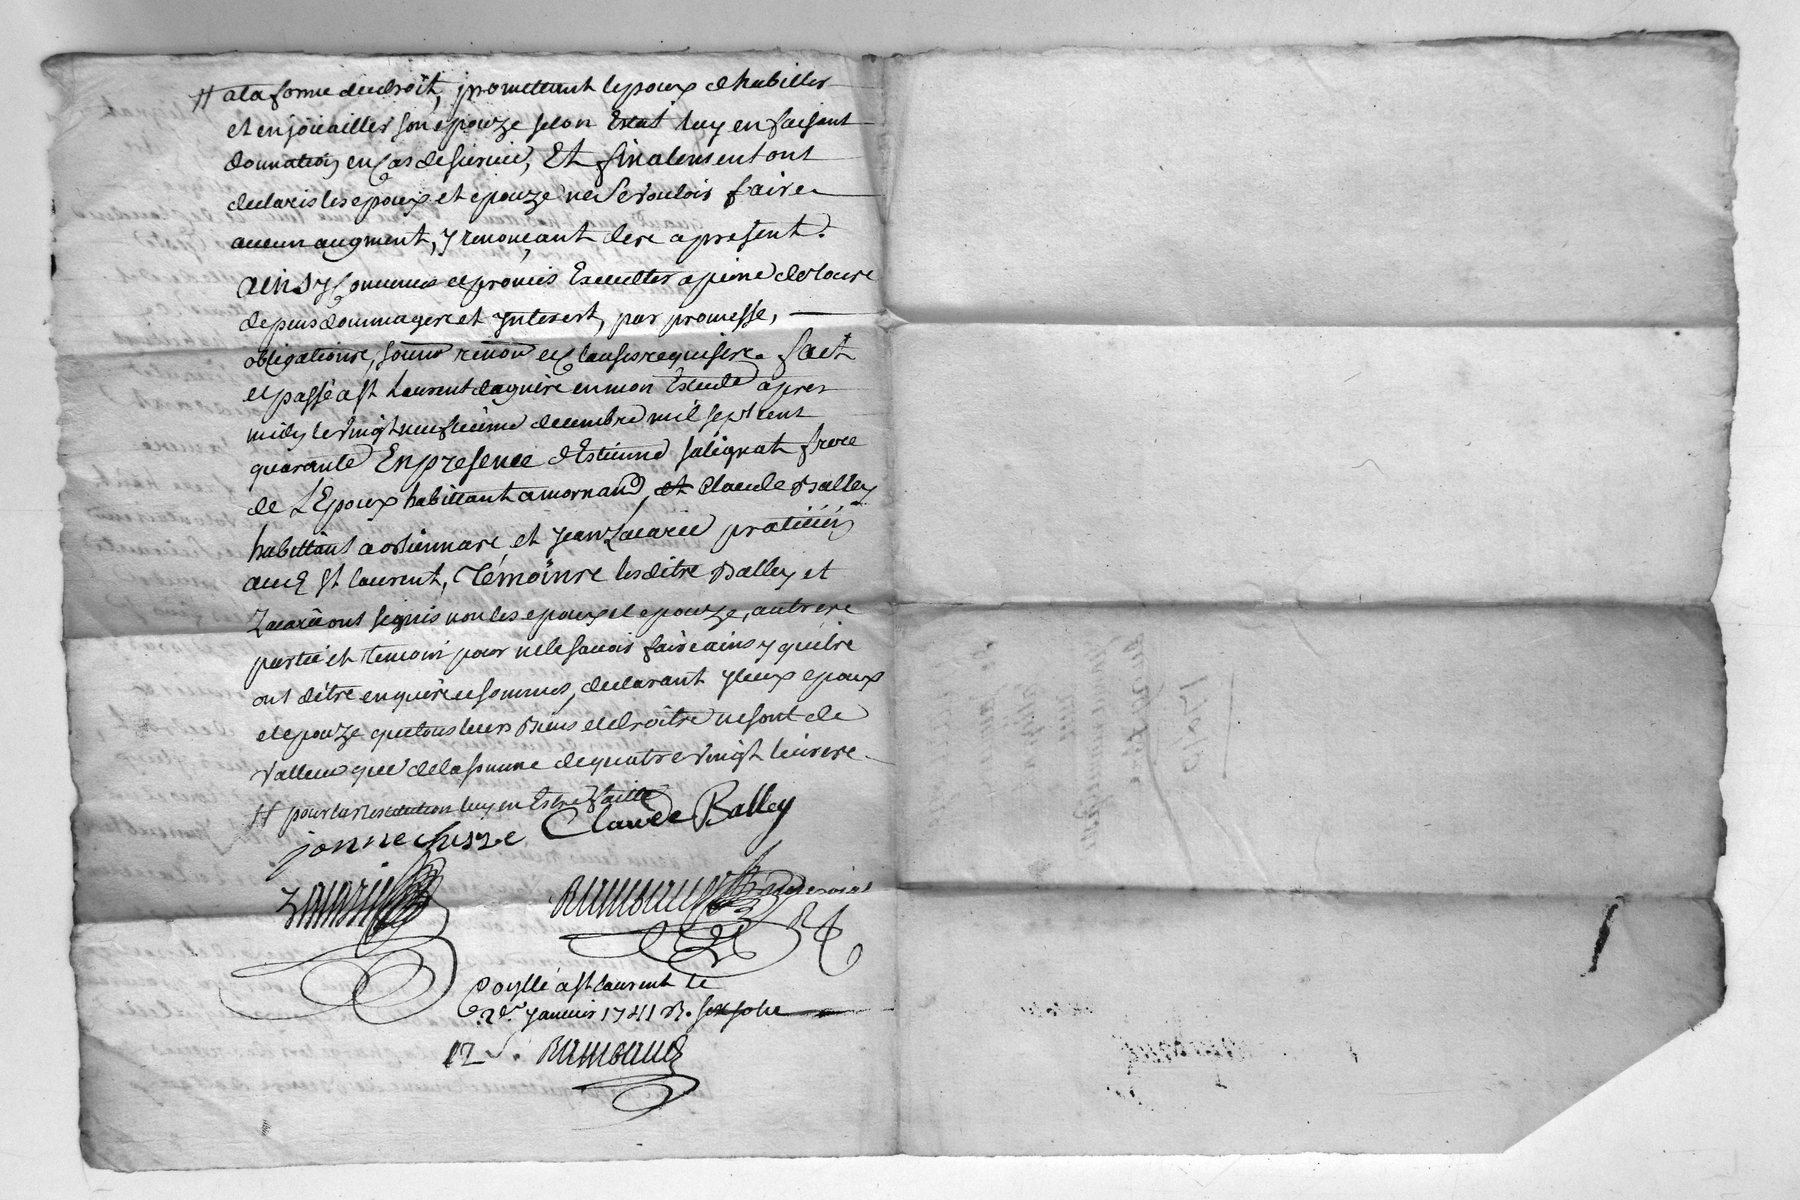 # ala forme dudroit, promettant lepoux d'habiller
et enjoüailler son epouze selon Estat luy en faisant
donnation en Cas de survie, Et finalement ont
declaré les epoux et epouze ne Se vouloir faire
aucun augment, y renonçant dere a present.
ainsy Convenus et promis Executter a peine de toure
depens dommagere et ynterest, par promesse,
obligationre, soum renon et clauses requisere. fait
et passé a st Laurent dagnire en mon Etude apres
midy le vingt neufvieme decembre mil sept cent
quarante En presence d'Estienne salignat frere
de L'Epoux habittant a mornand, et Claude Balley
habittant a orliennare, et Jean Zacarie praticien
aud st Laurent, Témoinre lesditre Balley et
Zacarie ont signés non les epoux et epouze, autrere
partie et temoin pour ne le savoir faire ainsy qu'ilre
ont ditre enquire et sommes, declarant yceux epoux
et epouze que tous leurs Biens et droitre ne sont de
valleur que de la somme de quatre vingt livrere
# pour la restitution luy en Estre faitte
Claude Balley
Zacarie
Rambaud
Controllé a st Laurent le
2e. Janvier 1741 R. six solre
12 s. Rambaud